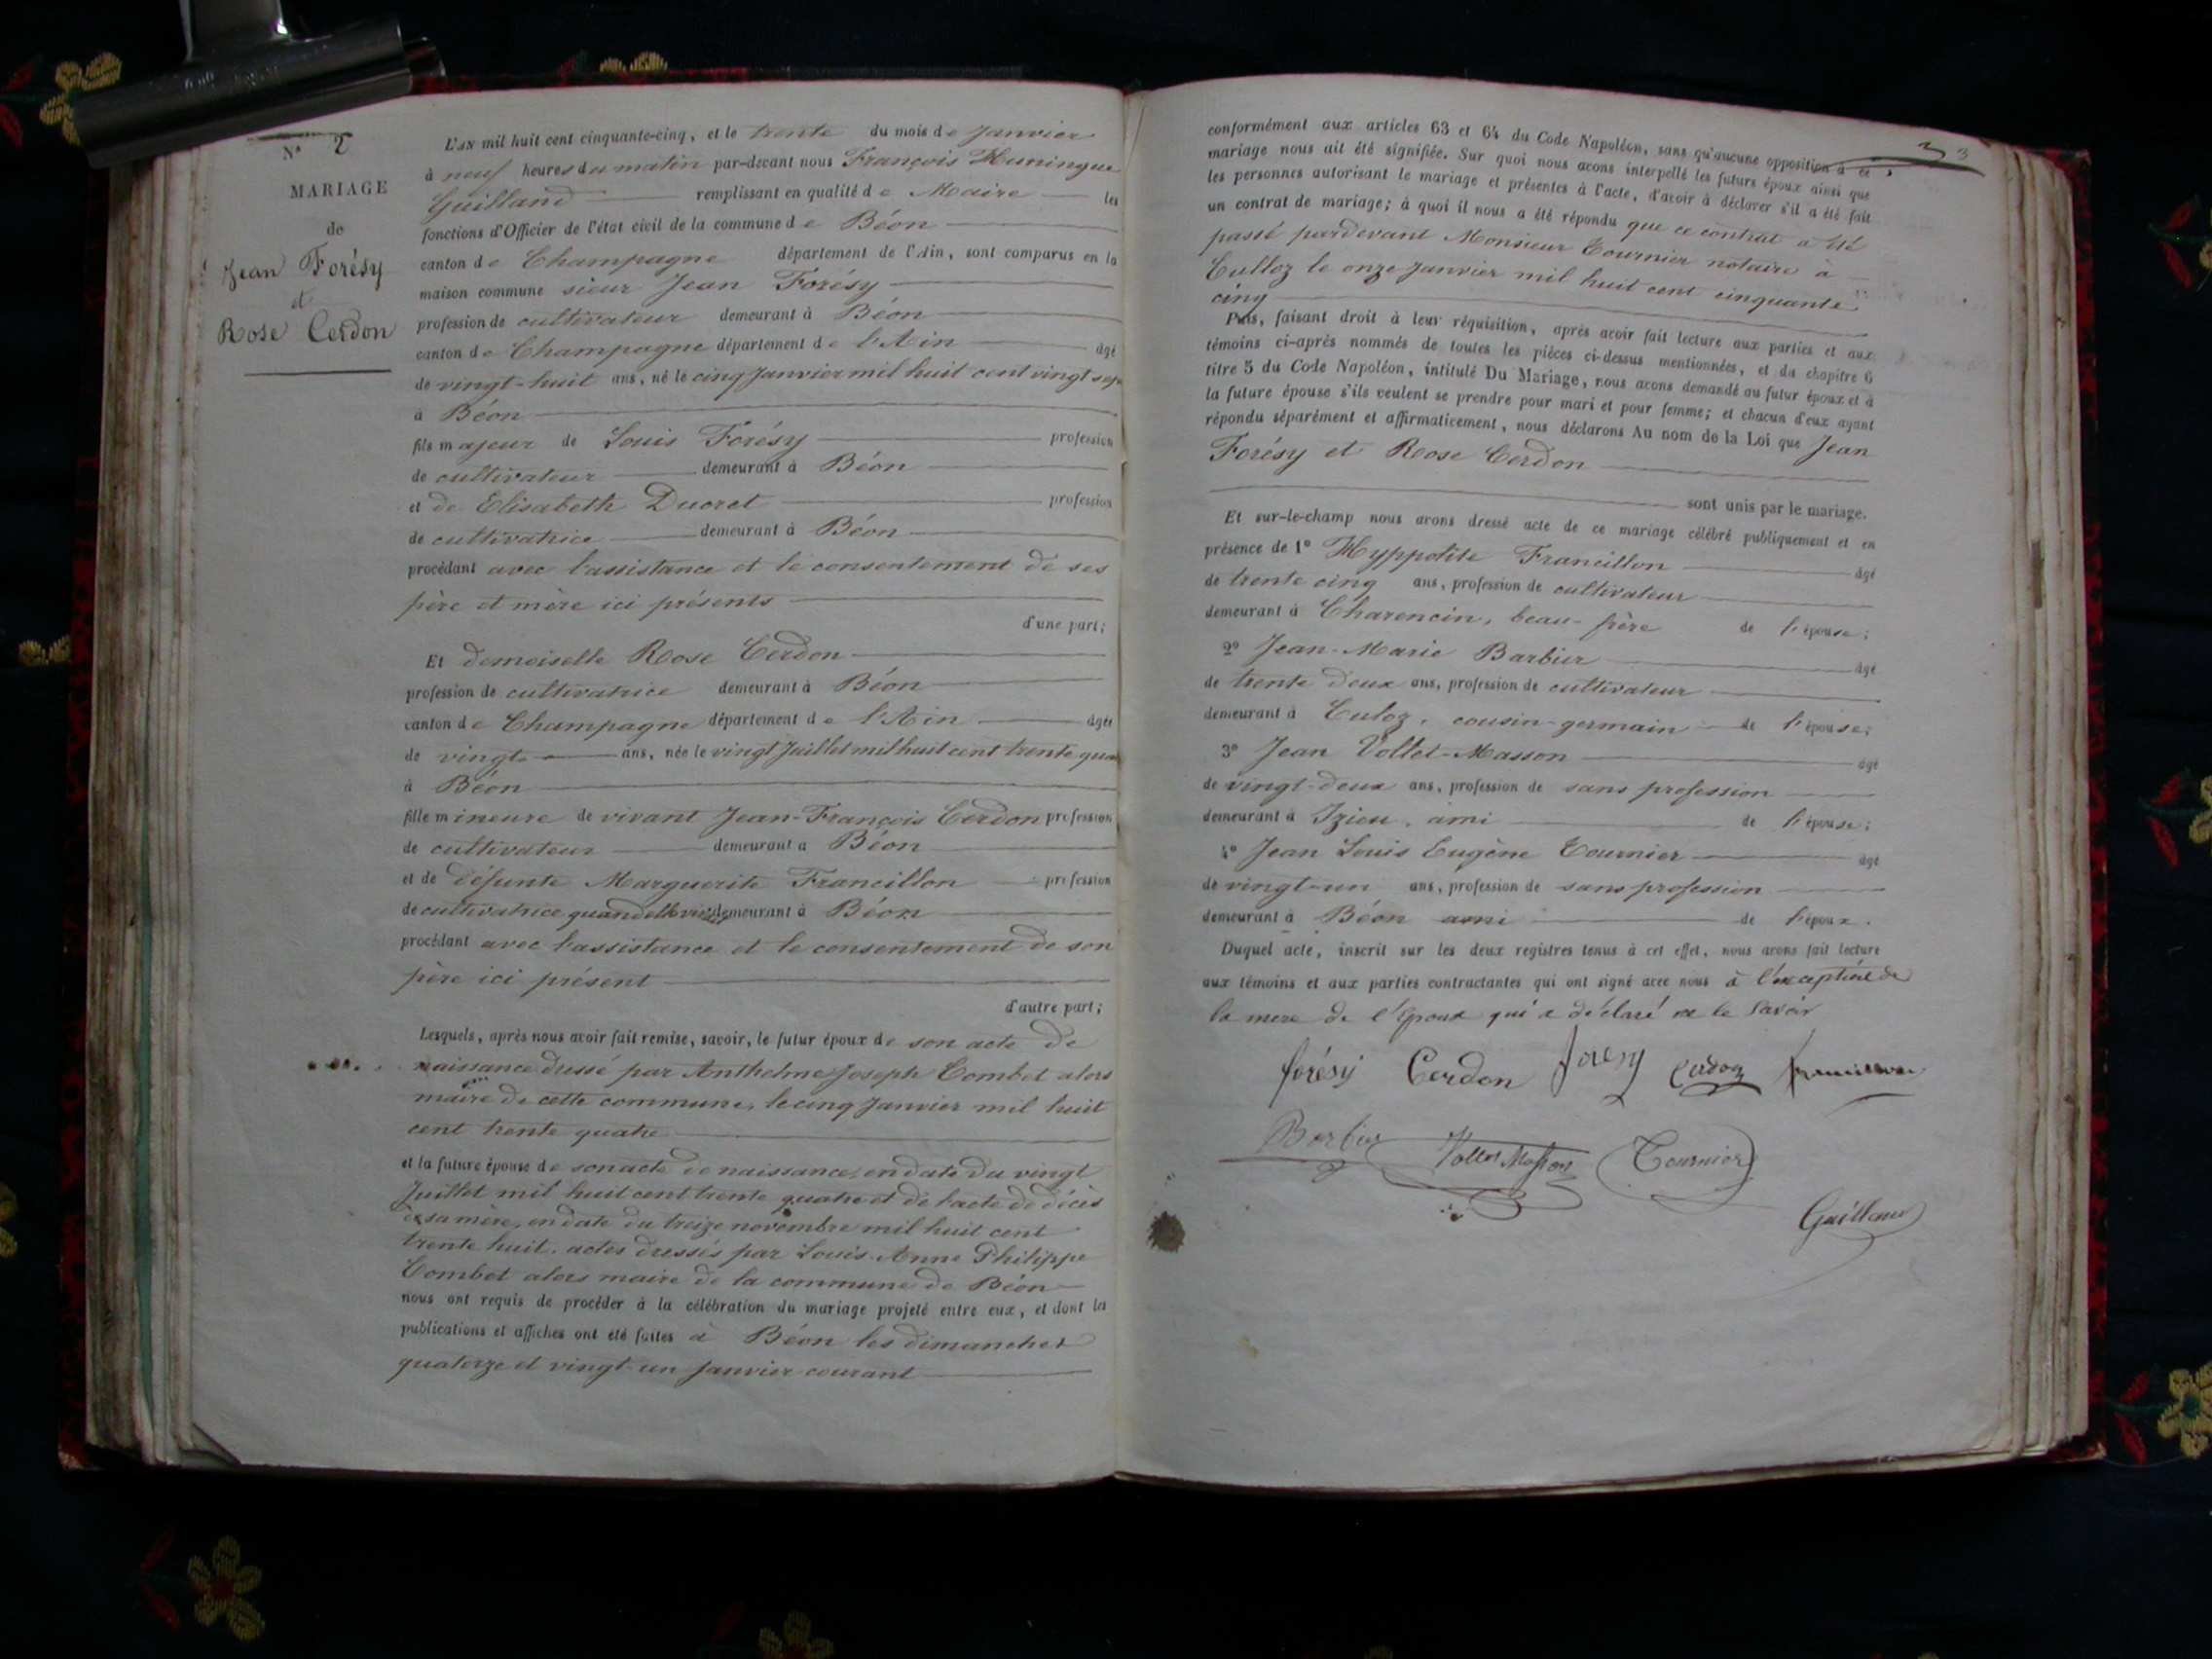 N° 2
MARIAGE
de
Jean Forésy
et
Rose Cerdon
L'an mil huit cent cinquante-cinq, et le trente du mois de Janvier
à neuf heures du matin par-devant nous François Huningue
Guilland remplissant en qualité de Maire les
fonctions d'Officier de l'état civil de la commune de Béon
canton de Champagne département de l'Ain, sont comparus en la
maison commune sieur Jean Forésy
profession de cultivateur demeurant à Béon
canton de Champagne département de l'Ain âgé
de vingt-huit ans, né le cinq Janvier mil huit cent vingt sept
à Béon
fils majeur de Louis Forésy profession
de cultivateur demeurant à Béon
et de Elisabeth Ducret profession
de cultivatrice demeurant à Béon
procédant avec l'assistance et le consentement de ses
père et mère ici présents
d'une part;
Et demoiselle Rose Cerdon
profession de cultivatrice demeurant à Béon
canton de Champagne département de l'Ain âgée
de vingt ans, née le vingt Juillet mil huit cent trente qua
à Béon
fille mineure de vivant Jean-François Cerdon profession
de cultivateur demeurant à Béon
et de défunte Marguerite Francillon profession
de cultivatrice quand elle vivait demeurant à Béon
procédant avec l'assistance et le consentement de son
père ici présent
d'autre part;
Lesquels, après nous avoir fait remise, savoir, le futur époux de son acte de
naissance dressé par Anthelme Joseph Combet alors
maire de cette commune, le cinq Janvier mil huit
cent trente quatre
et la future épouse de son acte de naissance, en date du vingt
Juillet mil huit cent trente quatre et de l'acte de décès
de sa mère, en date du treize novembre mil huit cent
trente huit, actes dressés par Louis Anne Philippe
Combet alors maire de la commune de Béon
nous ont requis de procéder à la célébration du mariage projeté entre eux, et dont les
publications et affiches ont été faites à Béon les dimanches
quatorze et vingt-un Janvier courant
3 3
conformément aux articles 63 et 64 du Code Napoléon, sans qu'aucune opposition à ce
mariage nous ait été signifiée. Sur quoi nous avons interpellé les futurs époux ainsi que
les personnes autorisant le mariage et présentes à l'acte, d'avoir à déclarer s'il a été fait
un contrat de mariage; à quoi il nous a été répondu que ce contrat a été
passé pardevant Monsieur Tournier notaire à
Culloz le onze Janvier mil huit cent cinquante
cinq
Puis, faisant droit à leur réquisition, après avoir fait lecture aux parties et aux
témoins ci-après nommés de toutes les pièces ci-dessus mentionnées, et du chapitre 6
titre 5 du Code Napoléon, intitulé Du Mariage, nous avons demandé au futur époux et à
la future épouse s'ils veulent se prendre pour mari et pour femme; et chacun d'eux ayant
répondu séparément et affirmativement, nous déclarons Au nom de la Loi que Jean
Forésy et Rose Cerdon
sont unis par le mariage.
Et sur-le-champ nous avons dressé acte de ce mariage célébré publiquement et en
présence de 1° Hyppolite Francillon âgé
de trente cinq ans, profession de cultivateur
demeurant à Charencin, beau-frère de l'épouse;
2° Jean-Marie Barbier âgé
de trente deux ans, profession de cultivateur
demeurant à Culoz, cousin-germain de l'épouse;
3° Jean Vollet-Masson âgé
de vingt-deux ans, profession de sans profession
demeurant à Izieu, ami de l'épouse;
4° Jean Louis Eugène Tournier âgé
de vingt-un ans, profession de sans profession
demeurant à Béon ami de l'époux.
Duquel acte, inscrit sur les deux registres tenus à cet effet, nous avons fait lecture
aux témoins et aux parties contractantes qui ont signé avec nous à l'exception de
la mere de l'époux qui a déclaré ne le savoir
forésy Cerdon foresy Cerdon francillon
Barbier Vollet Masson Tournier
Guilland